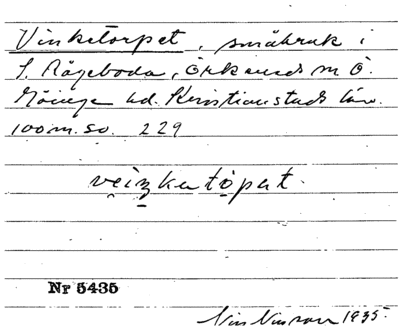 Vinketorpet, småbruk i
S. Rågeboda, Örkeneds sn Ö.
Göinge hd. Kristianstads län.
100 m. sv. 229
veinkatópat.
Nr 5435
Nils Nilsson 1935.